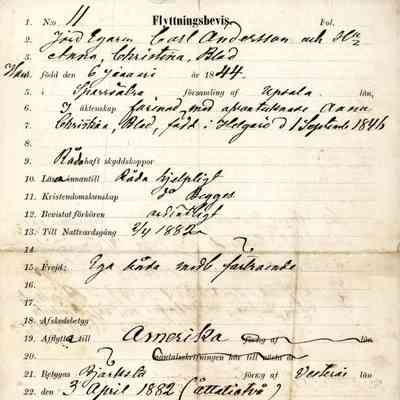 1. N:o 11 Flyttningsbevis. Fol.
2. Jord Egaren Carl Andersson och
3. Anna, Christina, Blad
4. född den 6 Januari år 1844.
5. i församling af Upsala län,
6. I äktenskap förenad med Anna
7. Christina, Blad, född i Helgarö d 1 Septembr 1846
8.
9. Båda haft skyddskoppor
10. Läsa innantill Båda hjelpligt
11. Kristendomskunskap Begges
12. Bevistat förhören ordentligt
13. Till Nattvardsgång 2/4 1882
14.
15. Frejd: Ega båda medb. förtroende
16.
17.
18. Afskedsbetyg
19. Aflytta till Amerika förlag af län
20. mantalsskrifningen här till nästa år
21. Betygas Björksta församl. af Vesterås län
22. den 3 April 1882 (åttatiotvå)